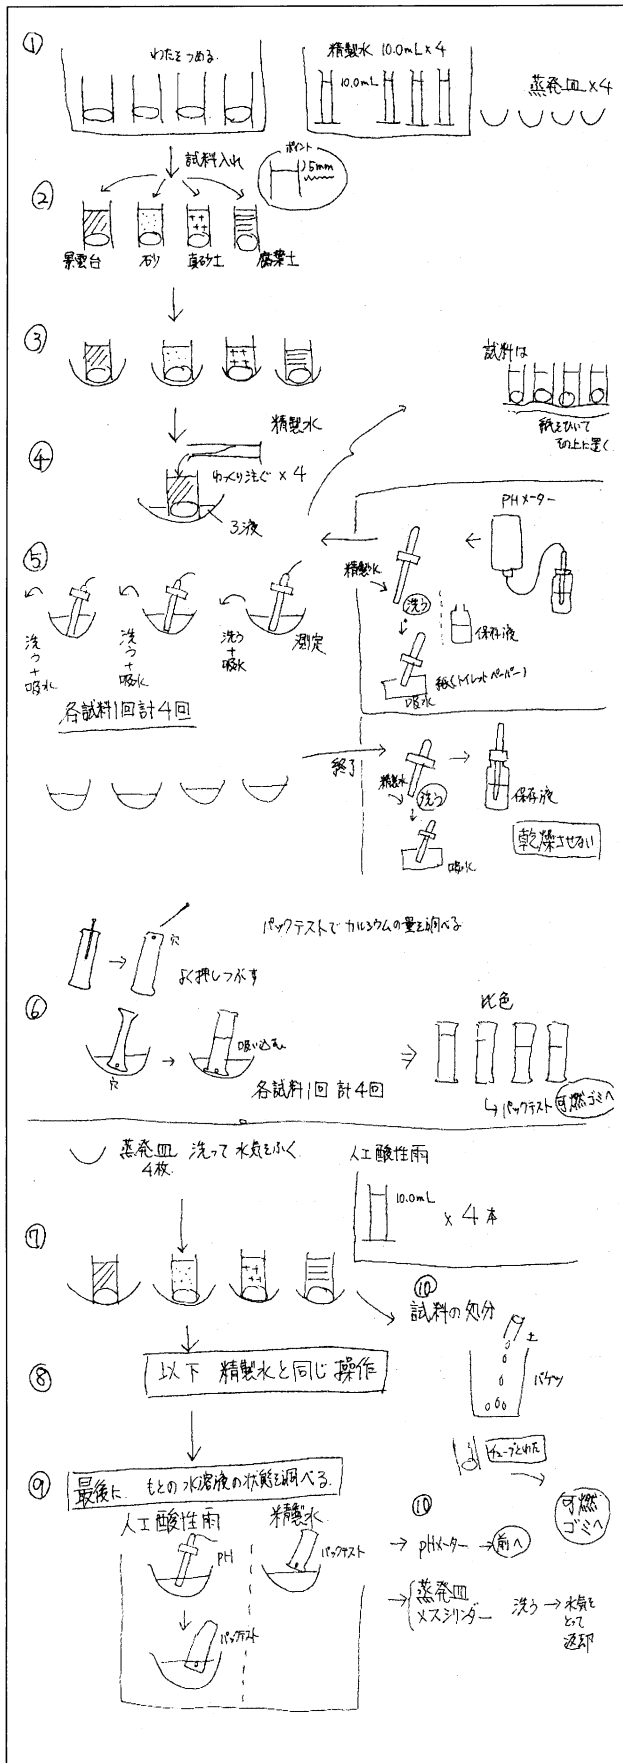 ①
わたをつめる
精製水 10.0mL×4
10.0mL
蒸発皿×4
試料入れ
ポイント
5mm
②
景雲台 砂 真砂土 腐葉土
③
試料は
紙をひいて
その上に置く
精製水
④
ゆっくり注ぐ×4
ろ液
PHメーター
⑤
精製水
洗う
保存液
紙(トイレットペーパー)
吸水
洗う
+
吸水
洗う
+
吸水
洗う
+
吸水
測定
各試料1回計4回
終了
精製水
洗う
保存液
吸水
乾燥させない
パックテストでカルシウムの量を調べる
穴
よく押しつぶす
⑥
穴
吸い込む
比色
各試料1回 計4回
パックテスト 可燃ゴミへ
蒸発皿 洗って 水気をふく
4枚
人工酸性雨
10.0mL
×4本
⑦
⑩
試料の処分
土
バケツ
⑧
以下 精製水と同じ操作
チューブとわた
可燃
ゴミへ
⑨
最後に もとの水溶液の状態を調べる.
人工酸性雨 精製水
pH
パックテスト
パックテスト
⑩
pHメーター → 前へ
蒸発皿
メスシリンダー 洗う → 水気を
とって
返却